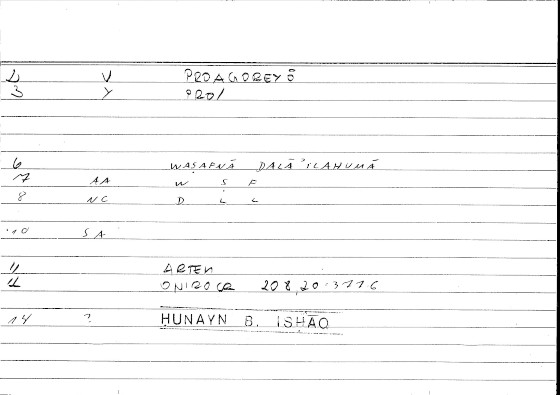 2 V PROAGOREYŌ
3 Y PRO/
6 WAṢAFNĀ DALĀʾILAHUMĀ
7 AA W Ṣ F
8 NC D L L
10 SA
11 ARTEM
12 ONIROCR 208,20
14 ? ḤUNAYN B. ISḤĀQ